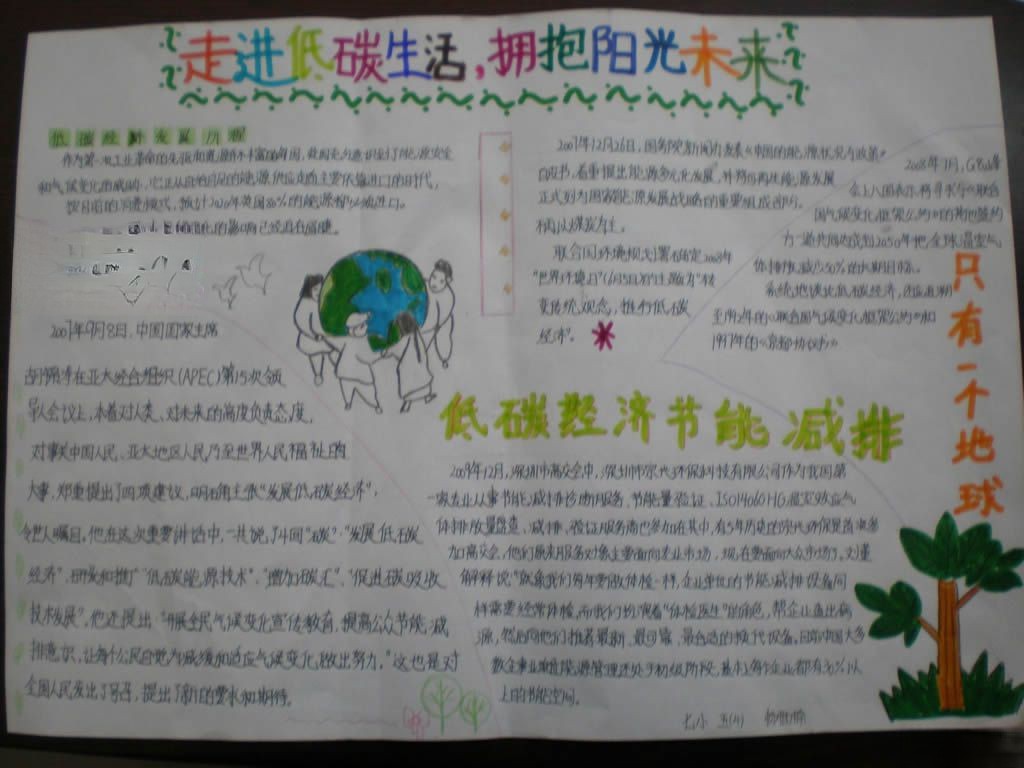 走进低碳生活,拥抱阳光未来
低碳经济发展历程
作为第一次工业革命的先驱和资源并不丰富的岛国,英国充分意识到了能源安全
和气候变化的威胁,它正从自给自足的能源供应走向主要依靠进口的时代,
按目前的消费模式,预计2020年英国80%的能源都必须进口。
的影响已经迫在眉睫。
2007年9月8日,中国国家主席
胡锦涛在亚太经合组织(APEC)第15次领
导人会议上,本着对人类、对未来的高度负责态度,
对事关中国人民、亚太地区人民乃至世界人民福祉的
大事,郑重提出了四项建议,明确主张“发展低碳经济”,
令世人瞩目。他在这次重要讲话中,一共说了4回“碳”:“发展低碳
经济”、研发和推广“低碳能源技术”、“增加碳汇”、“促进碳吸收
技术发展”。他还提出:“开展全民气候变化宣传教育,提高公众节能减
排意识,让每个公民自觉为减缓和适应气候变化做出努力。”这也是对
全国人民发出了号召,提出了新的要求和期待。
2007年12月26日,国务院新闻办发表《中国的能源状况与政策》
白皮书,着重提出能源多元化发展,并将可再生能源发展
正式列为国家能源发展战略的重要组成部分,
不再以煤炭为主。
联合国环境规划署确定2008年
“世界环境日”(6月5日)的主题为“转
变传统观念,推行低碳
经济”。
2008年7月,G8峰
会上八国表示将寻求与《联合
国气候变化框架公约》的其他签约
方一道共同达成到2050年把全球温室气
体排放减少50%的长期目标。
系统地谈论低碳经济,还应追溯
至1992年的《联合国气候变化框架公约》和
1997年的《京都协议书》
只有一个地球
低碳经济节能减排
2009年12月,深圳市高交会中,深圳市环保科技有限公司作为我国第
一家专业从事节能减排诊断服务、节能量验证、ISO14060HG温室效应气
体排放量盘查、减排、验证服务商也参加在其中,有5年历史的
加高交会,他们原来服务对象主要面向专业市场,现在要面向大众市场了,
解释说“就像我们每年要做体检一样,企业单位的节能减排设备同
样需要经常体检,而我们扮演着“体检医生”的角色,帮企业查出病
源,然后向他们推荐最新、最可靠、最合适的换代设备,目前中国大多
数企事业单位能源管理还处于初级阶段,基本上每个企业都有30%以
上的节能空间。
七小 五(4)